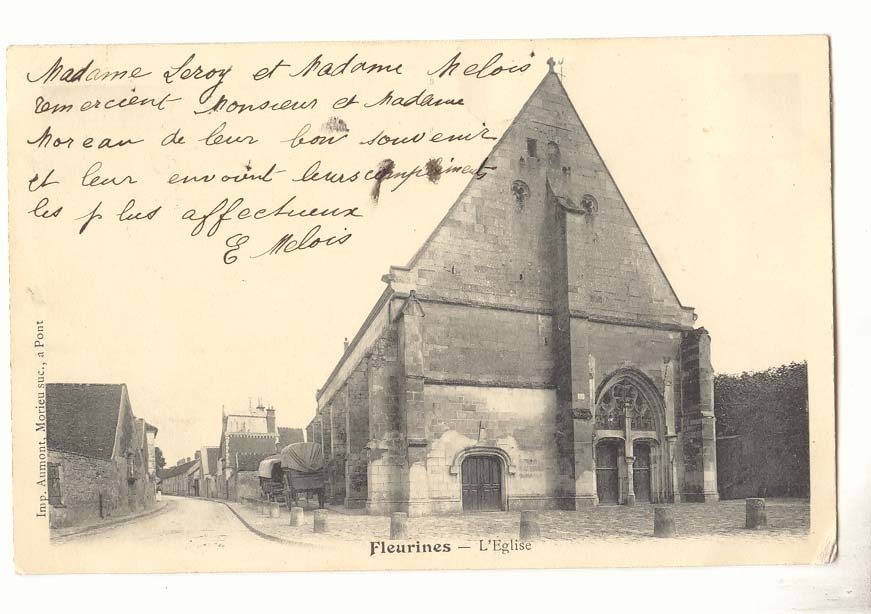 Madame Leroy et Madame Melois
remercient Monsieur et Madame
Moreau de leur bon souvenir
et leur envoient leurs compliments
les plus affectueux
E Melois
Imp. Aumont, Morieu suc., a Pont
Fleurines — L'Eglise